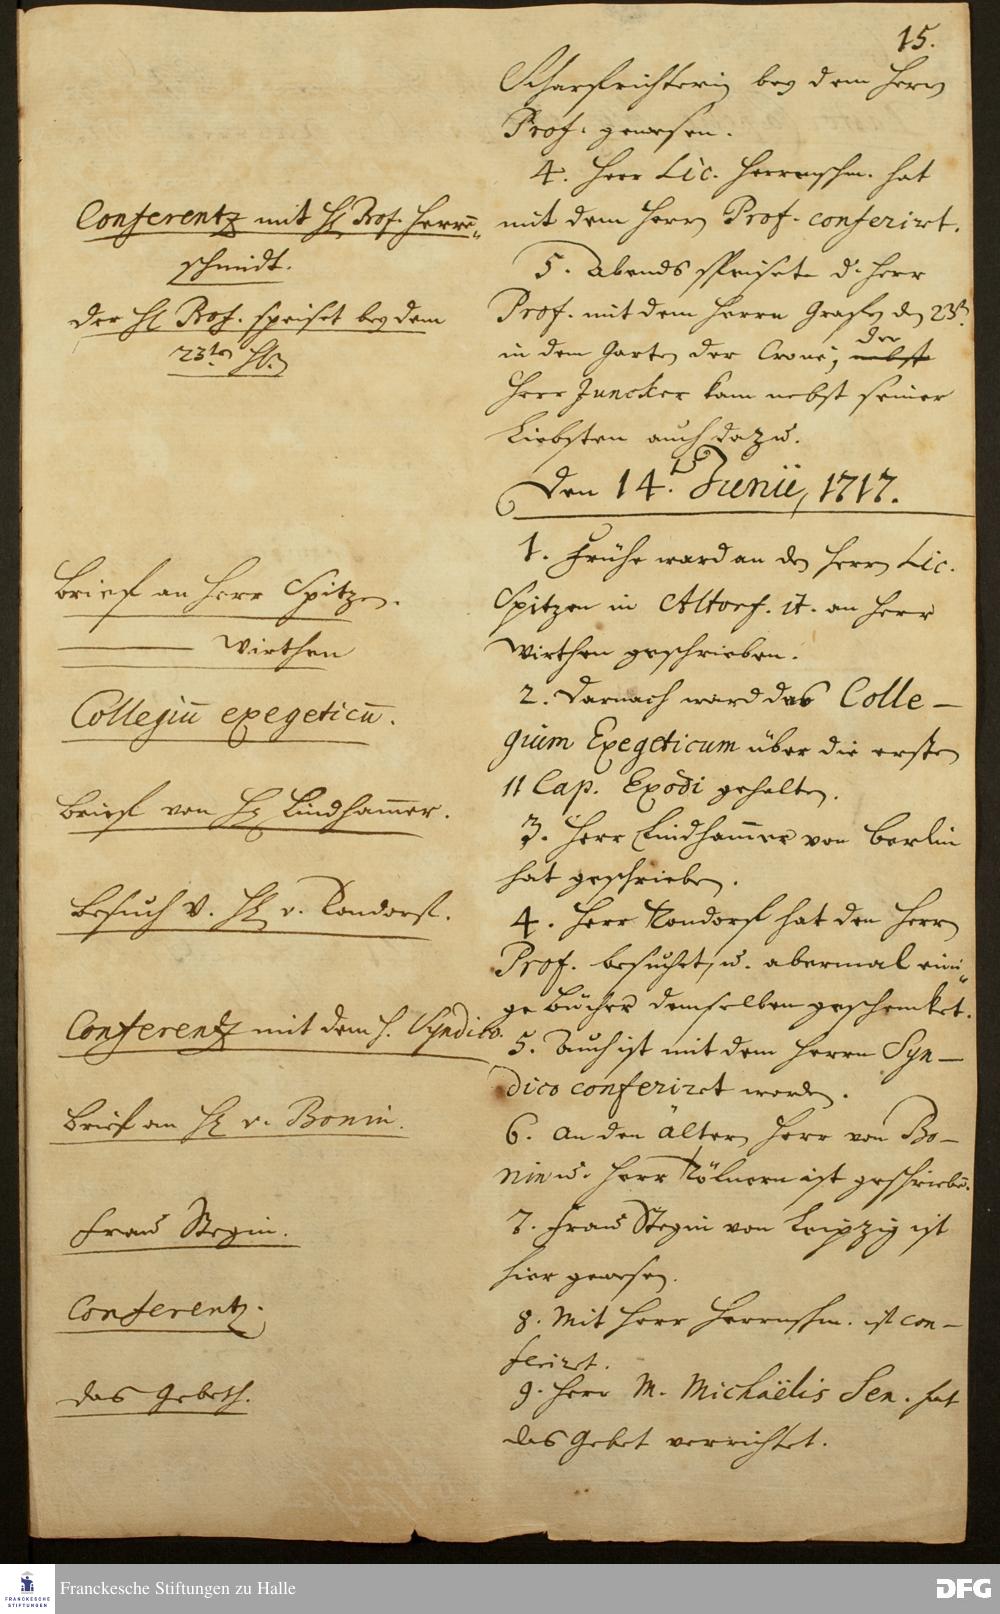 15.
Scharfrichterin bey dem Herrn
Prof. gewesen.
4. Herr Lic. Herrnschm. hat
mit dem Herrn Prof. conferiret.
5. Abends speisete d. Herr
Prof. mit dem Herrn Grafen den 23st.
in dem Garten der Crone, nebst der
Herr Juncker kam nebst seiner
Liebsten auch dazu.
Conferentz mit H Prof. Herrn-
schmidt.
Der H Prof. speiset bey dem
23ten H.
Den 14. Junii, 1717.
1. Frühe ward an den Herrn Lic.
Spitzen in Altorf. it. an Herr
Wirthen geschrieben.
2. Darnach ward das Colle-
gium Exegeticum über die ersten
11 Cap. Exodi gehalten.
3. Herr Lindham̄er von Berlin
hat geschrieben.
4. Herr Tondorf hat den Herrn
Prof. besuchet, u. abermal eini-
ge Bücher demselben geschencket.
5. Auch ist mit dem Herrn Syn-
dico conferiret worden.
6. An den älteren Herr von Bo-
nin u. Herr Kölnern ist geschriebē.
7. Frau Stegin von Leipzig ist
hier gewesen.
8. Mit Herr Herrnschm. ist con-
feriret.
9. Herr M. Michaëlis Sen. hat
das Gebet verrichtet.
Brief an Herr Spitzen.
——— Wirthen
Collegiū exegeticū.
Brief von H Lindham̄er.
Besuch v. H v. Tondorf.
Conferentz mit dem H. Syndico.
Brief an H v. Bonin.
Frau Stegin.
Conferentz.
das Gebeth.
Franckesche Stiftungen zu Halle
FRANCKESCHE
STIFTUNGEN
DFG